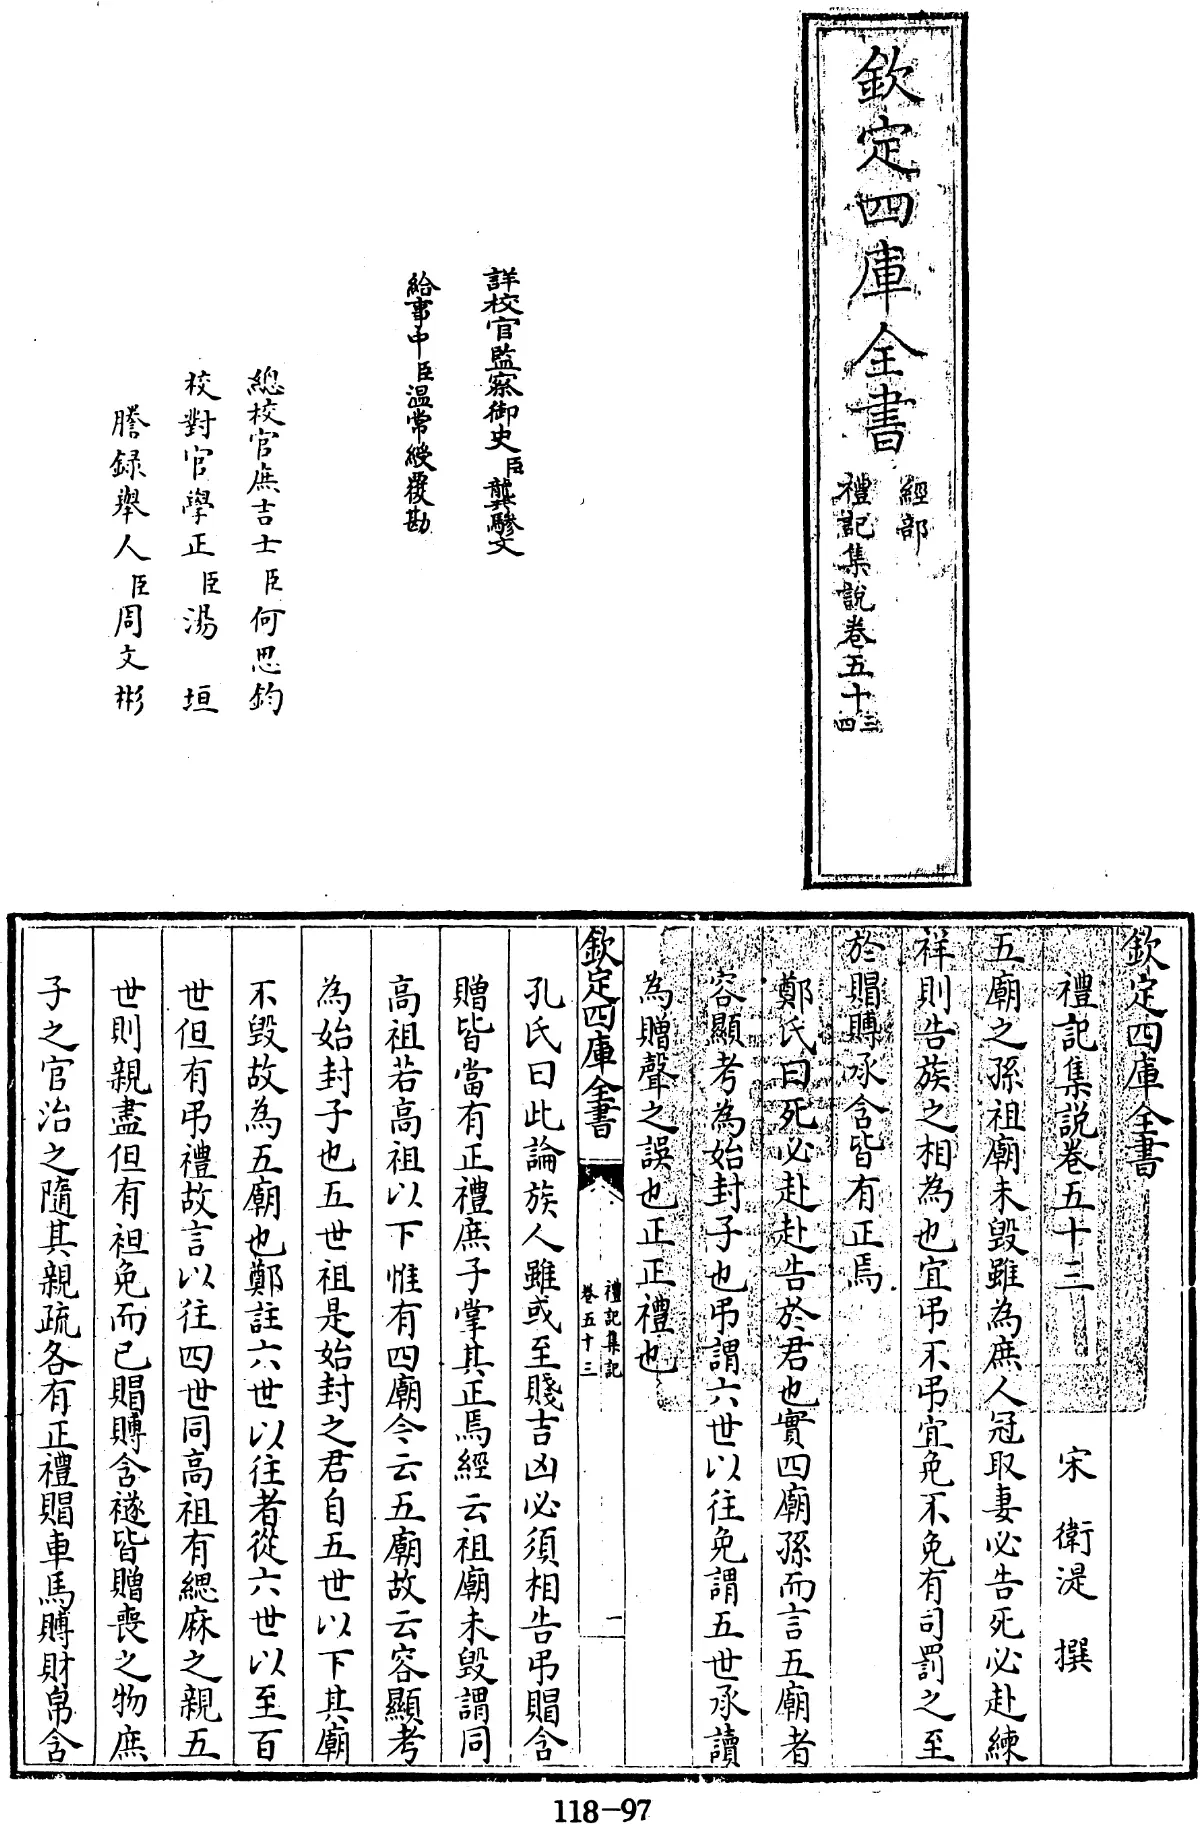 欽定四庫全書
經部
禮記集說卷五十三
四
詳校官監察御史臣龔驂文
給事中臣温常綬覆勘
總校官庶吉士臣何思鈞
校對官學正臣湯垣
謄録舉人臣周文彬
欽定四庫全書
禮記集說卷五十三
宋 衛湜 撰
五廟之孫祖廟未毀雖為庶人冠取妻必告死必赴練
祥則告族之相為也宜弔不弔宜免不免有司罰之至
於賵賻承含皆有正焉
鄭氏曰死必赴赴告於君也實四廟孫而言五廟者
容顯考為始封子也弔謂六世以往免謂五世承讀
為贈聲之誤也正正禮也
欽定四庫全書
禮記集說
卷五十三
一
孔氏曰此論族人雖或至賤吉凶必須相告弔賵含
贈皆當有正禮庶子掌其正焉經云祖廟未毀謂同
高祖若高祖以下惟有四廟今云五廟故云容顯考
為始封子也五世祖是始封之君自五世以下其廟
不毀故為五廟也鄭註六世以往者從六世以至百
世但有弔禮故言以往四世同高祖有緦麻之親五
世則親盡但有袒免而已賵賻含襚皆贈喪之物庶
子之官治之隨其親疏各有正禮賵車馬賻財帛含
118-97